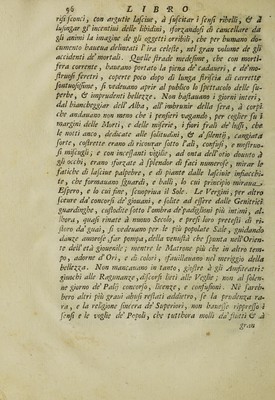 96 LIBRO
risi sconci, con argutie lascive, à suscitar i sensi ribelli, & à
lusingar gl'incentivi delle libidini, sforzandosi di cancellare da
gli animi la imagine de gli oggetti orribili, che per humano do-
cumento haveva delineati l'ira celeste, nel gran volume de gli
accidenti de' mortali. Quelle strade medesime, che con morti-
fera corrente, haueano portato la piena de' cadaveri, e de' mo-
struosi feretri, coperte poco dopo di lunga striscia di carrette
suntuosissime, si vedeano aprir al publico lo spettacolo delle su-
perbe, & imprudenti bellezze. Non bastavano i giorni interi,
dal biancheggiar dell'Alba, all'imbrunir della sera, à corpi
che andavano non meno che i pensieri vagando, per coglier su i
margini delle Morti, e delle miserie, i fiori frali de' lussi, che
le notti anco, dedicate alle solitudini, & a' silentij, cangiata
forte, costrette erano di ricourar sotto l'ali, confusi, e mostruo-
si miscugli, e con incessanti vigilie, ad onta dell'otio dovuto à
gli occhi, erano sforzate à splendor di faci numerose, mirar le
fatiche di lascive palpebre, e di piante dalle lascivie infiacchi-
te, che formavano sguardi, e balli, lo cui principio mirava
Espero, e lo cui fine, scoupriva il Sole. Le Vergini, per altro
sicure da' consorti de' giovani, e solite ad essere dalle Genitrici
guardinghe, custodite sotto l'ombra de' padiglioni più intimi, al-
lhora, quasi rinate à nuovo Secolo, e presi loro pretesti di ri-
storo da' guai, si vedevano per le più populate Sale, guidando
danze amorose far pompa, della venustà che spunta nell'Orien-
te dell'età giovenile; mentre le Matrone più che in altro tem-
po, adorne d'Ori, e di colori, sfavillavano nel meriggio della
bellezza. Non mancavano in tanto, giostre à gli Anfiteatri:
giuochi alle Ragunanze, discorsi lieti alle Veglie; non al solen-
ne giorno de' Palij concorso, licenze, e confusioni. Nè sareb-
bero altri più gravi abusi restati addietro, se la prudenza ra-
ra, e la religion sincera de' Superiori, non havesse ripresso i
sensi e le voglie de' Popoli, che tutthora molli da' fiati & à
gran